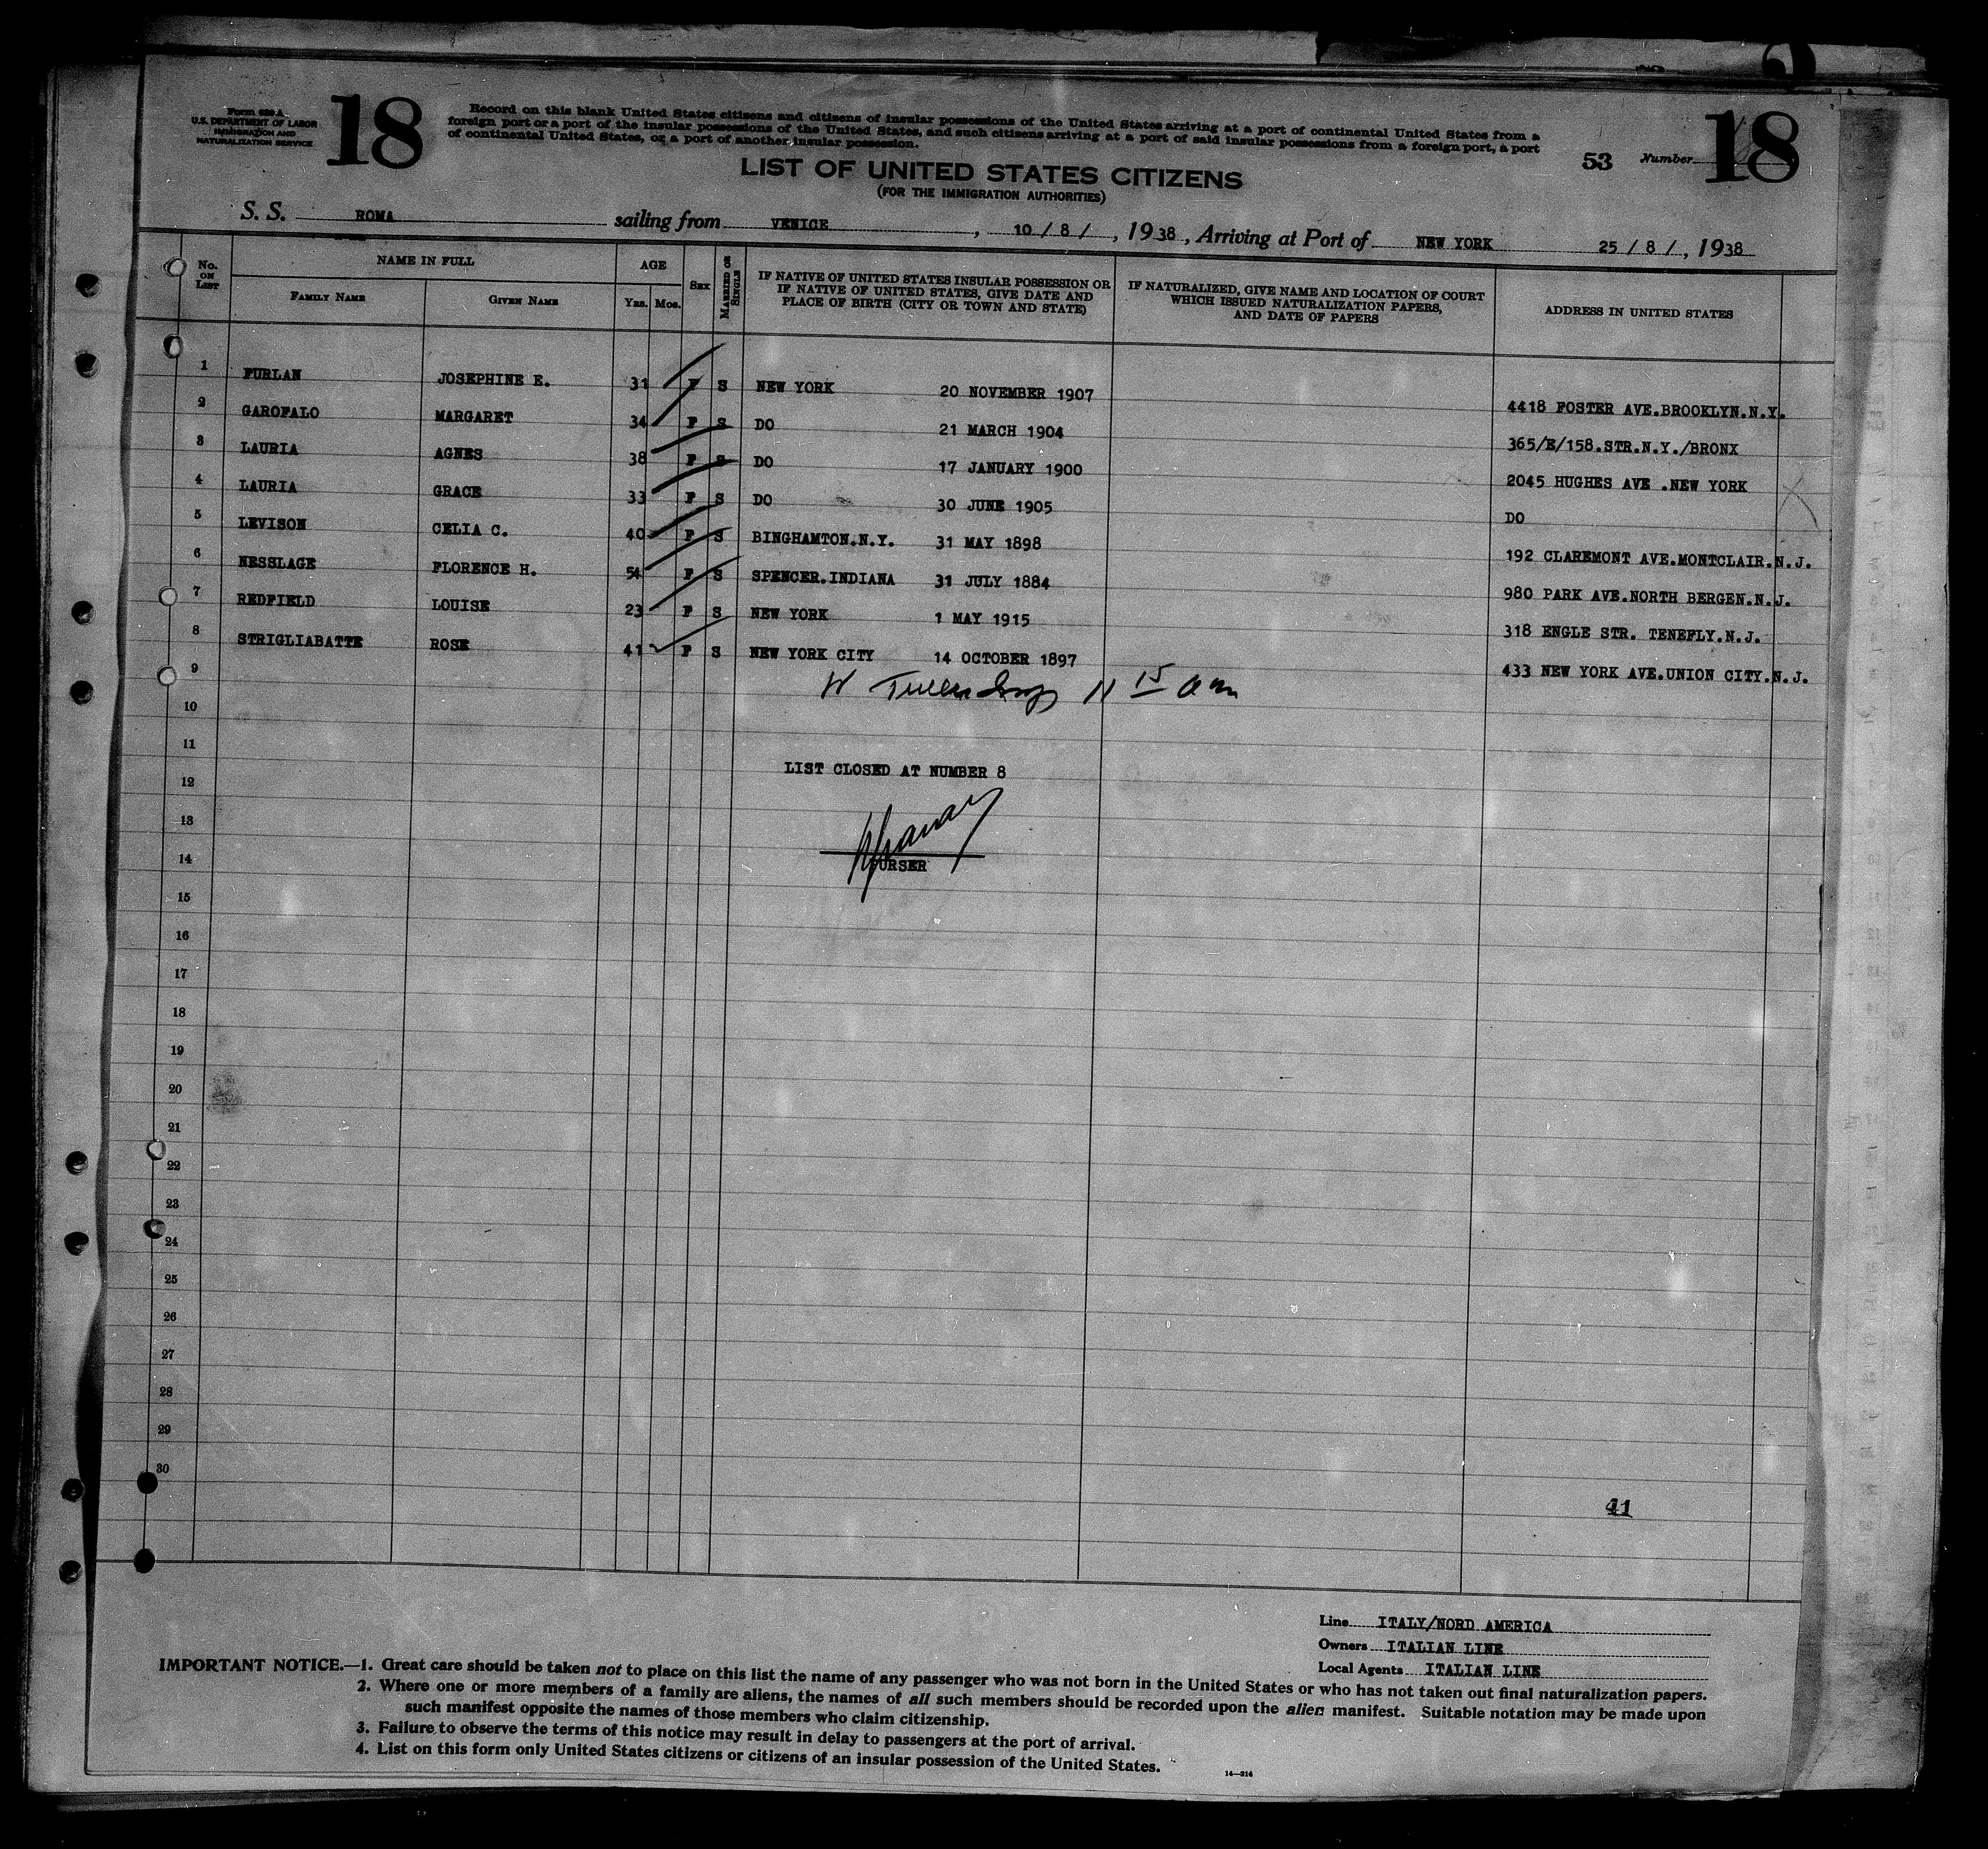 Form 630 A
U.S. DEPARTMENT OF LABOR
IMMIGRATION AND
NATURALIZATION SERVICE
18
Record on this blank United States citizens and citizens of insular possessions of the United States arriving at a port of continental United States from a
foreign port or a port of the insular possessions of the United States, and such citizens arriving at a port of said insular possessions from a foreign port, a port
of continental United States, or a port of another insular possession.
53 Number 18
LIST OF UNITED STATES CITIZENS
(FOR THE IMMIGRATION AUTHORITIES)
S. S. ROMA sailing from VENICE, 10 / 8 /, 1938, Arriving at Port of NEW YORK 25 / 8 /, 1938
No. ON LIST
NAME IN FULL
FAMILY NAME
GIVEN NAME
AGE
YRS. MOS.
SEX
MARRIED OR SINGLE
IF NATIVE OF UNITED STATES INSULAR POSSESSION OR
IF NATIVE OF UNITED STATES, GIVE DATE AND
PLACE OF BIRTH (CITY OR TOWN AND STATE)
IF NATURALIZED, GIVE NAME AND LOCATION OF COURT
WHICH ISSUED NATURALIZATION PAPERS,
AND DATE OF PAPERS
ADDRESS IN UNITED STATES
1 FURLAN JOSEPHINE E. 31 F S NEW YORK 20 NOVEMBER 1907 4418 FOSTER AVE.BROOKLYN.N.Y.
2 GAROFALO MARGARET 34 F S DO 21 MARCH 1904 365/E/158.STR.N.Y./BRONX
3 LAURIA AGNES 38 F S DO 17 JANUARY 1900 2045 HUGHES AVE .NEW YORK
4 LAURIA GRACE 33 F S DO 30 JUNE 1905 DO
5 LEVISON CELIA C. 40 F S BINGHAMTON.N.Y. 31 MAY 1898 192 CLAREMONT AVE.MONTCLAIR.N.J.
6 NESSLAGE FLORENCE H. 54 F S SPENCER.INDIANA 31 JULY 1884 980 PARK AVE.NORTH BERGEN.N.J.
7 REDFIELD LOUISE 23 F S NEW YORK 1 MAY 1915 318 ENGLE STR. TENEFLY.N.J.
8 STRIGLIABATTE ROSE 41 F S NEW YORK CITY 14 OCTOBER 1897 433 NEW YORK AVE.UNION CITY.N.J.
9 11 15 am
10
11
LIST CLOSED AT NUMBER 8
12
13
14
PURSER
15
16
17
18
19
20
21
22
23
24
25
26
27
28
29
30
41
Line ITALY/NORD AMERICA
Owners ITALIAN LINE
Local Agents ITALIAN LINE
IMPORTANT NOTICE.—1. Great care should be taken not to place on this list the name of any passenger who was not born in the United States or who has not taken out final naturalization papers.
2. Where one or more members of a family are aliens, the names of all such members should be recorded upon the alien manifest. Suitable notation may be made upon
such manifest opposite the names of those members who claim citizenship.
3. Failure to observe the terms of this notice may result in delay to passengers at the port of arrival.
4. List on this form only United States citizens or citizens of an insular possession of the United States.
14—214